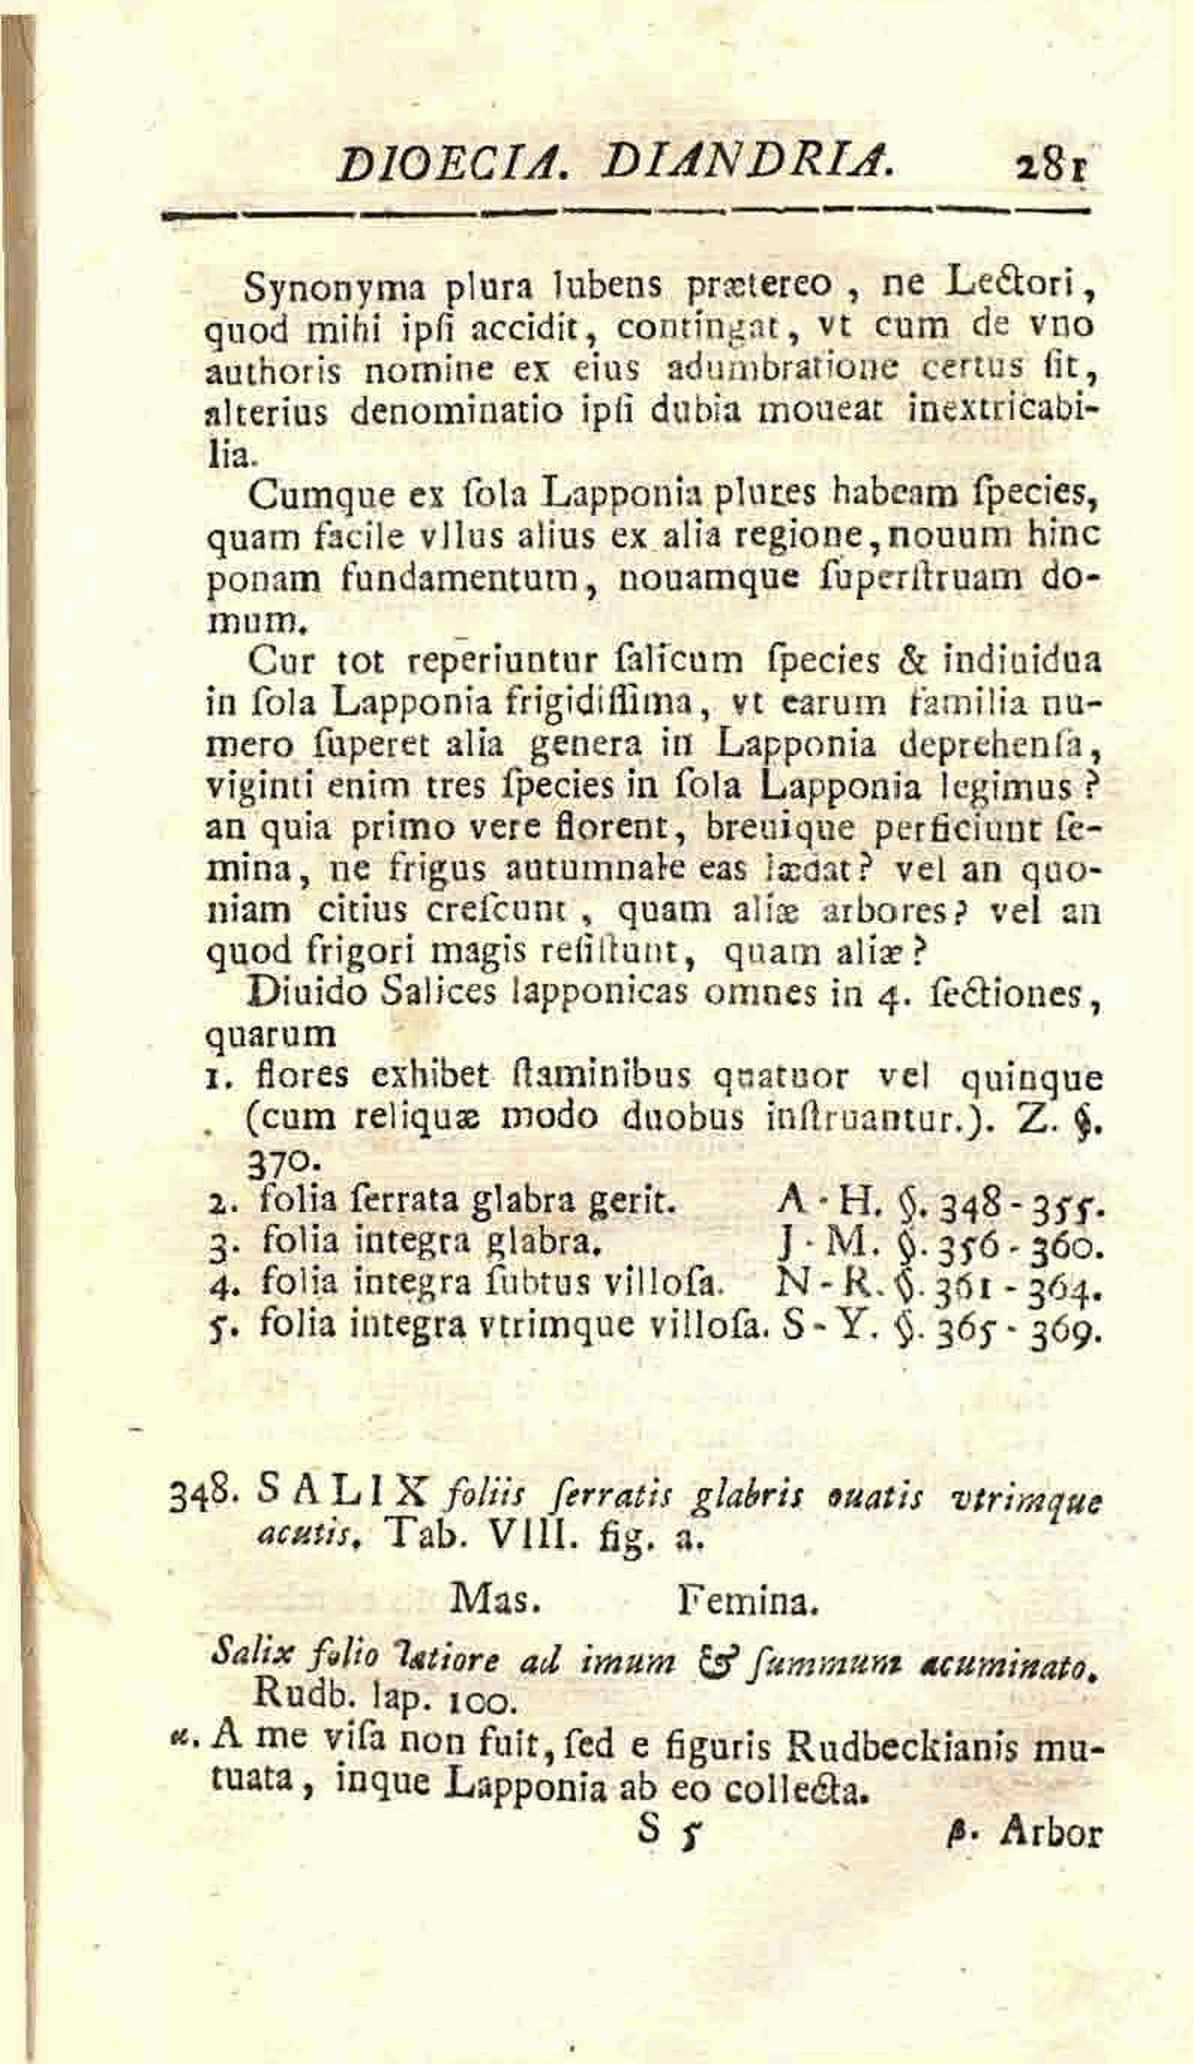 DIOECIA. DIANDRIA. 281
Synonyma plura lubens prætereo , ne Lectori,
quod mihi ipſi accidit, contingat, vt cum de vno
authoris nomine ex eius adumbratione certus ſit,
alterius denominatio ipſi dubia moueat inextricabi-
lia.
Cumque ex ſola Lapponia plures habeam ſpecies,
quam facile vllus alius ex alia regione, nouum hinc
ponam fundamentum, nouamque ſuperſtruam do-
mum.
Cur tot reperiuntur ſalicum ſpecies & indiuidua
in ſola Lapponia frigidiſſima, vt earum familia nu-
mero ſuperet alia genera in Lapponia deprehenſa,
viginti enim tres ſpecies in ſola Lapponia legimus ?
an quia primo vere florent, breuique perficiunt ſe-
mina, ne frigus autumnale eas lædat? vel an quo-
niam citius creſcunt , quam aliæ arbores? vel an
quod frigori magis reſiſtunt, quam aliæ?
Diuido Salices lapponicas omnes in 4. ſectiones,
quarum
1. flores exhibet ſtaminibus quatuor vel quinque
(cum reliquæ modo duobus inſtruantur.). Z. §.
370.
2. folia ſerrata glabra gerit. A - H. §. 348 - 355.
3. folia integra glabra. J - M. §. 356 - 360.
4. folia integra ſubtus villoſa. N - R. §. 361 - 364.
5. folia integra vtrimque villoſa. S - Y. §. 365 - 369.
348. SALIX foliis ſerratis glabris ouatis vtrimque
acutis. Tab. VIII. fig. a.
Mas. Femina.
Salix folio latiore ad imum & ſummum acuminato.
Rudb. lap. 100.
α. A me viſa non fuit, ſed e figuris Rudbeckianis mu-
tuata, inque Lapponia ab eo collecta.
S 5 β. Arbor